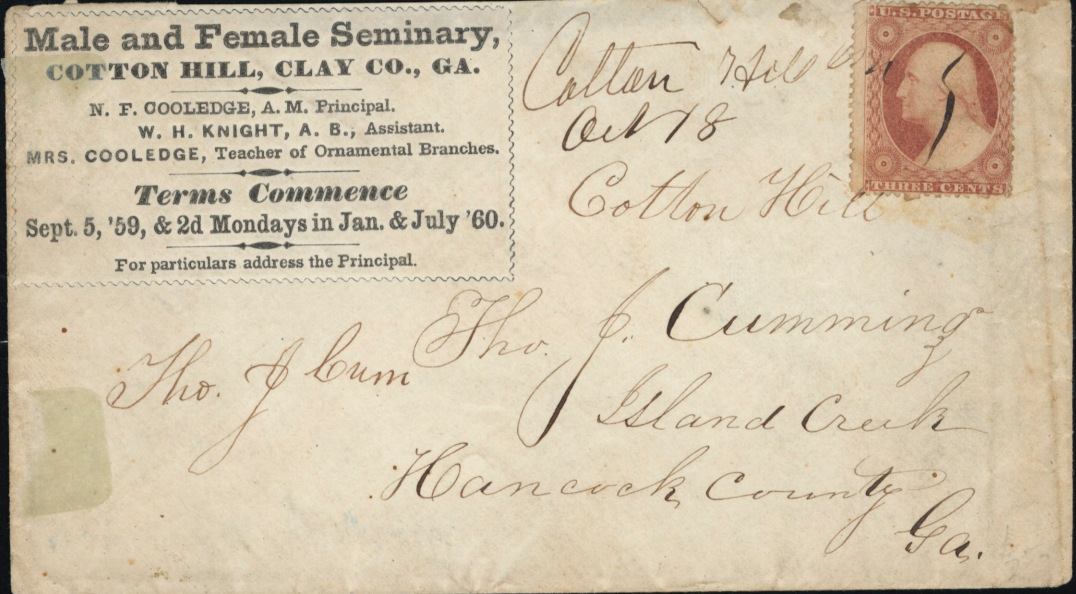 Male and Female Seminary,
COTTON HILL, CLAY CO., GA.
N. F. COOLEDGE, A. M. Principal.
W. H. KNIGHT, A. B., Assistant.
MRS. COOLEDGE, Teacher of Ornamental Branches.
Terms Commence
Sept. 5, '59, & 2d Mondays in Jan. & July '60.
For particulars address the Principal.
Cotton Hill
Oct 18
Cotton Hill
U.S. POSTAGE
THREE CENTS
Tho. J. Cumming
Tho. J Cum
Island Creek
Hancock County
Ga.